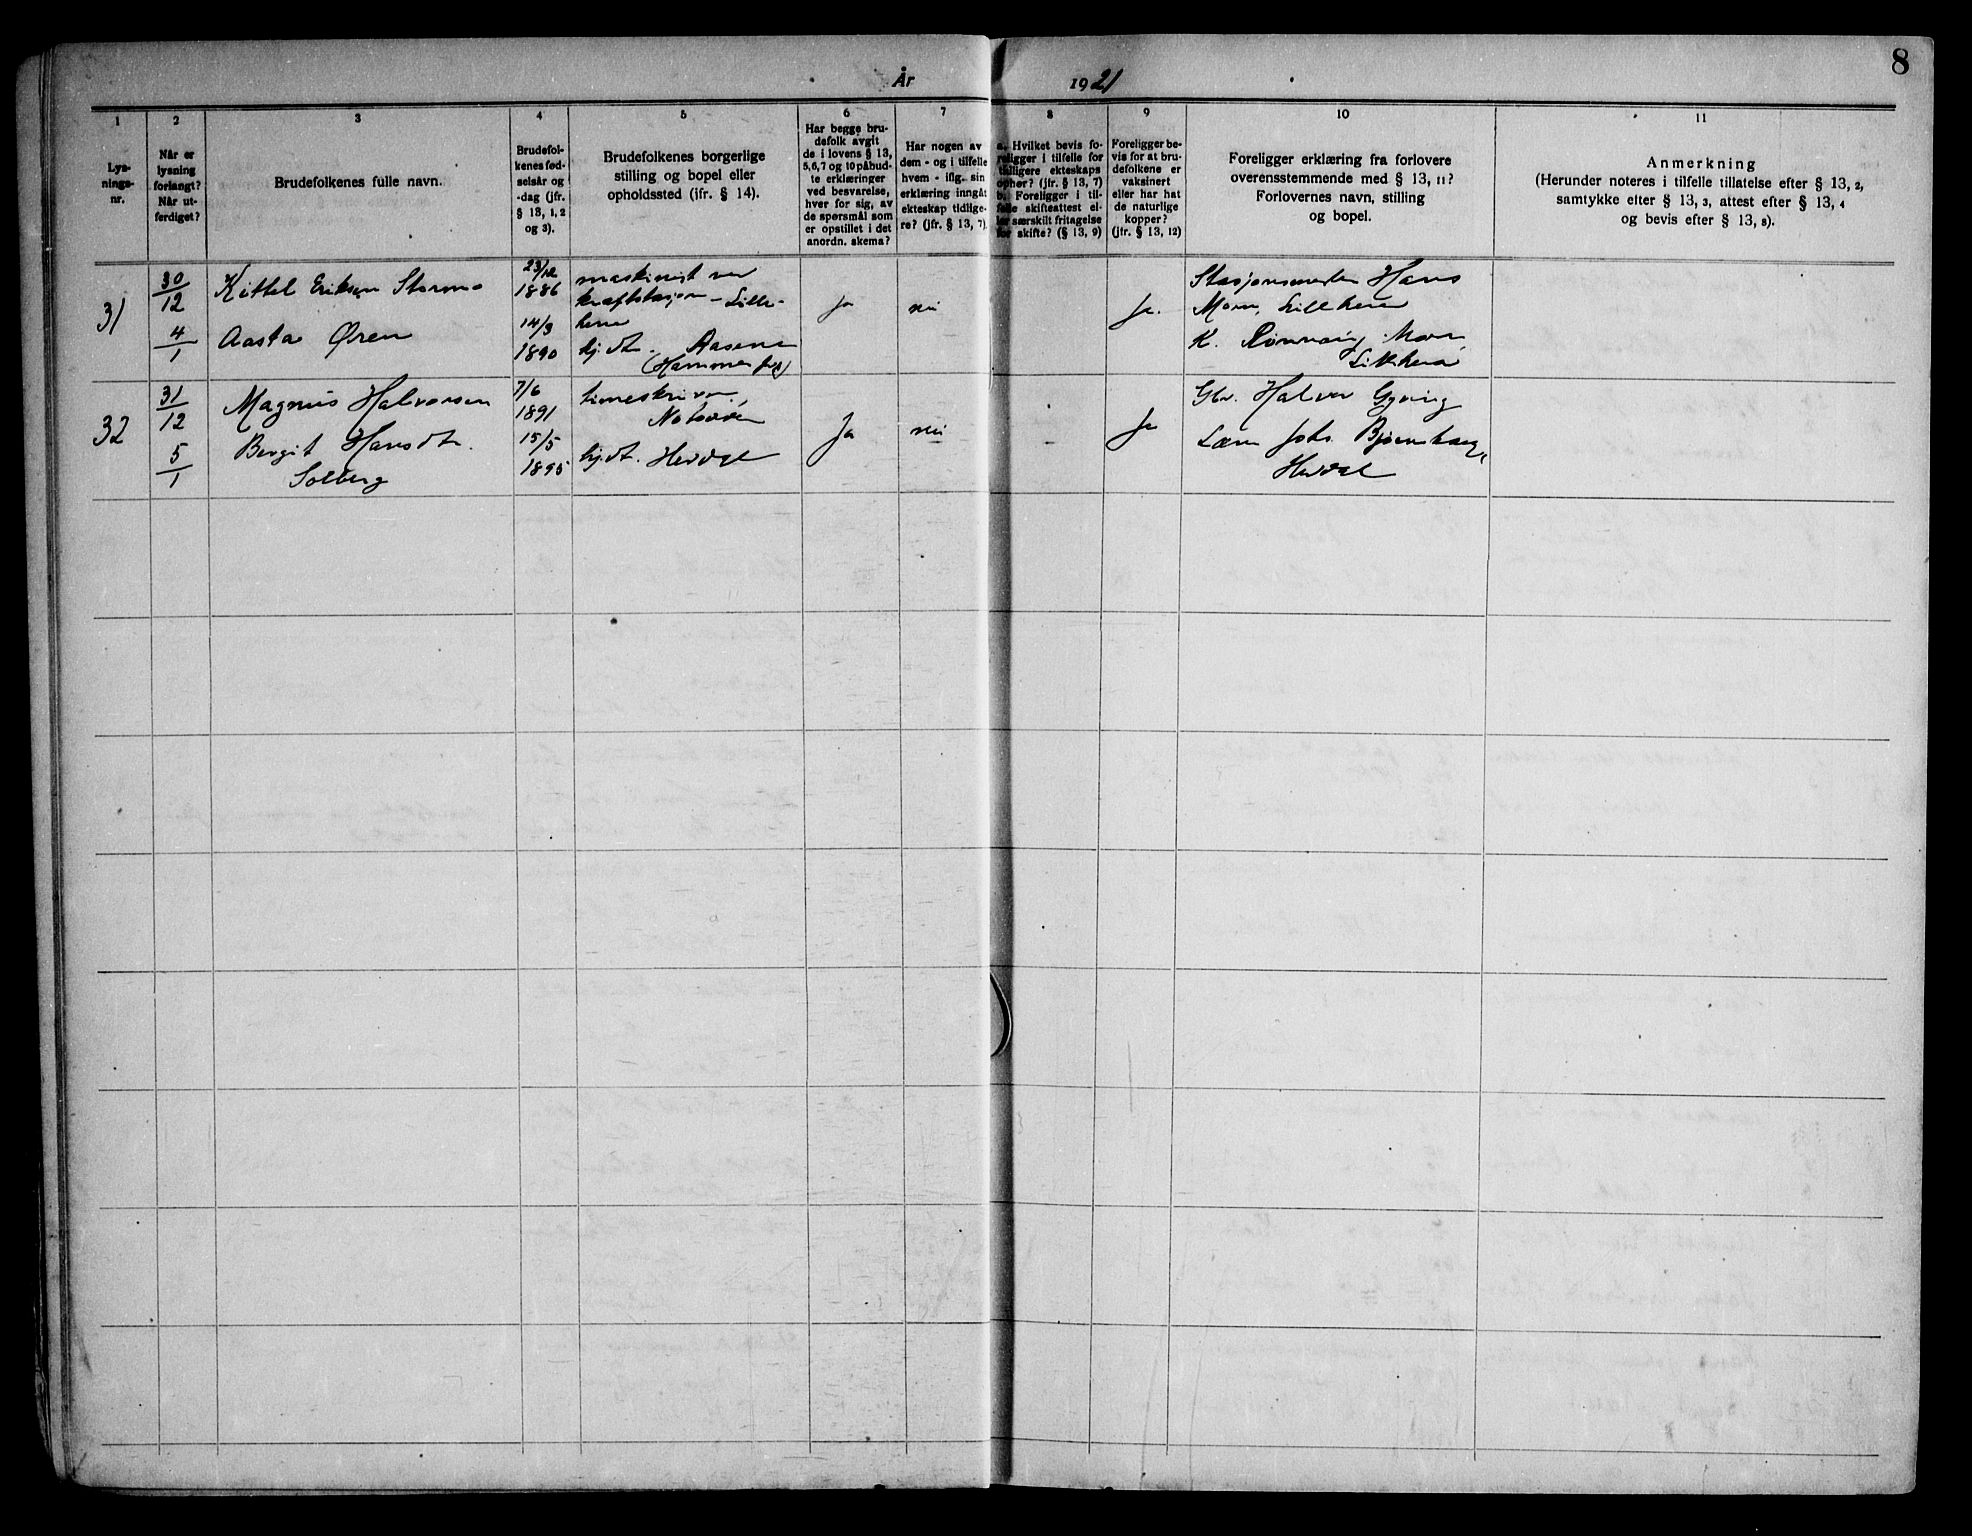 8
År 1921
1 2 3 4 5 6 7 8 9 10 11
Lys-
nings-
nr.
Når er
lysning
forlangt?
Når ut-
ferdiget?
Brudefolkenes fulle navn.
Brudefol-
kenes fød-
selsår og
-dag (jfr.
§ 13, 1, 2
og 3).
Brudefolkenes borgerlige
stilling og bopel eller
opholdssted (jfr. § 14).
Har begge bru-
defolk avgit
de i lovens § 13,
5,6,7 og 10 påbud-
te erklæringer
ved besvarelse,
hver for sig, av
de spørsmål som
er opstillet i det
anordn. skema?
Har nogen av
dem - og i tilfelle
hvem - iflg. sin
erklæring inngåt
ekteskap tidlige-
re? (jfr. § 13, 7).
a. Hvilket bevis fo-
religger i tilfelle for
tidligere ekteskaps
ophør? (jfr. § 13, 7)
b. Foreligger i til-
felle skifteattest el-
ler særskilt fritagelse
for skifte? (§ 13, 9)
Foreligger be-
vis for at bru-
defolkene er
vaksinert
eller har hat
de naturlige
kopper?
(jfr. § 13, 12)
Foreligger erklæring fra forlovere
overensstemmende med § 13, 11?
Forlovernes navn, stilling
og bopel.
Anmerkning
(Herunder noteres i tilfelle tillatelse efter § 13, 2,
samtykke efter § 13, 3, attest efter § 13, 4
og bevis efter § 13, 8).
31
30/12
4/1
Kittel Eriksen
Aasta Øren
23/12
1886
14/3
1890
maskinist ved
kraftstasjon - Lille-
herre
hj. dt. Aasene
Ja
nei
Ja.
Stasjonsmester Hans
Moen, Lilleherre
K. Rønnaug Moen
Lilleherre
32
31/12
5/1
Magnus Halvorsen
Bergit Hansdt.
Solberg
7/6
1891
15/5
1895
timeskriver,
Notodden
hj.dt. Heddal
Ja
nei
Ja
Gbr. Halvor
Lærer Johs. Bjørnhaug,
Heddal